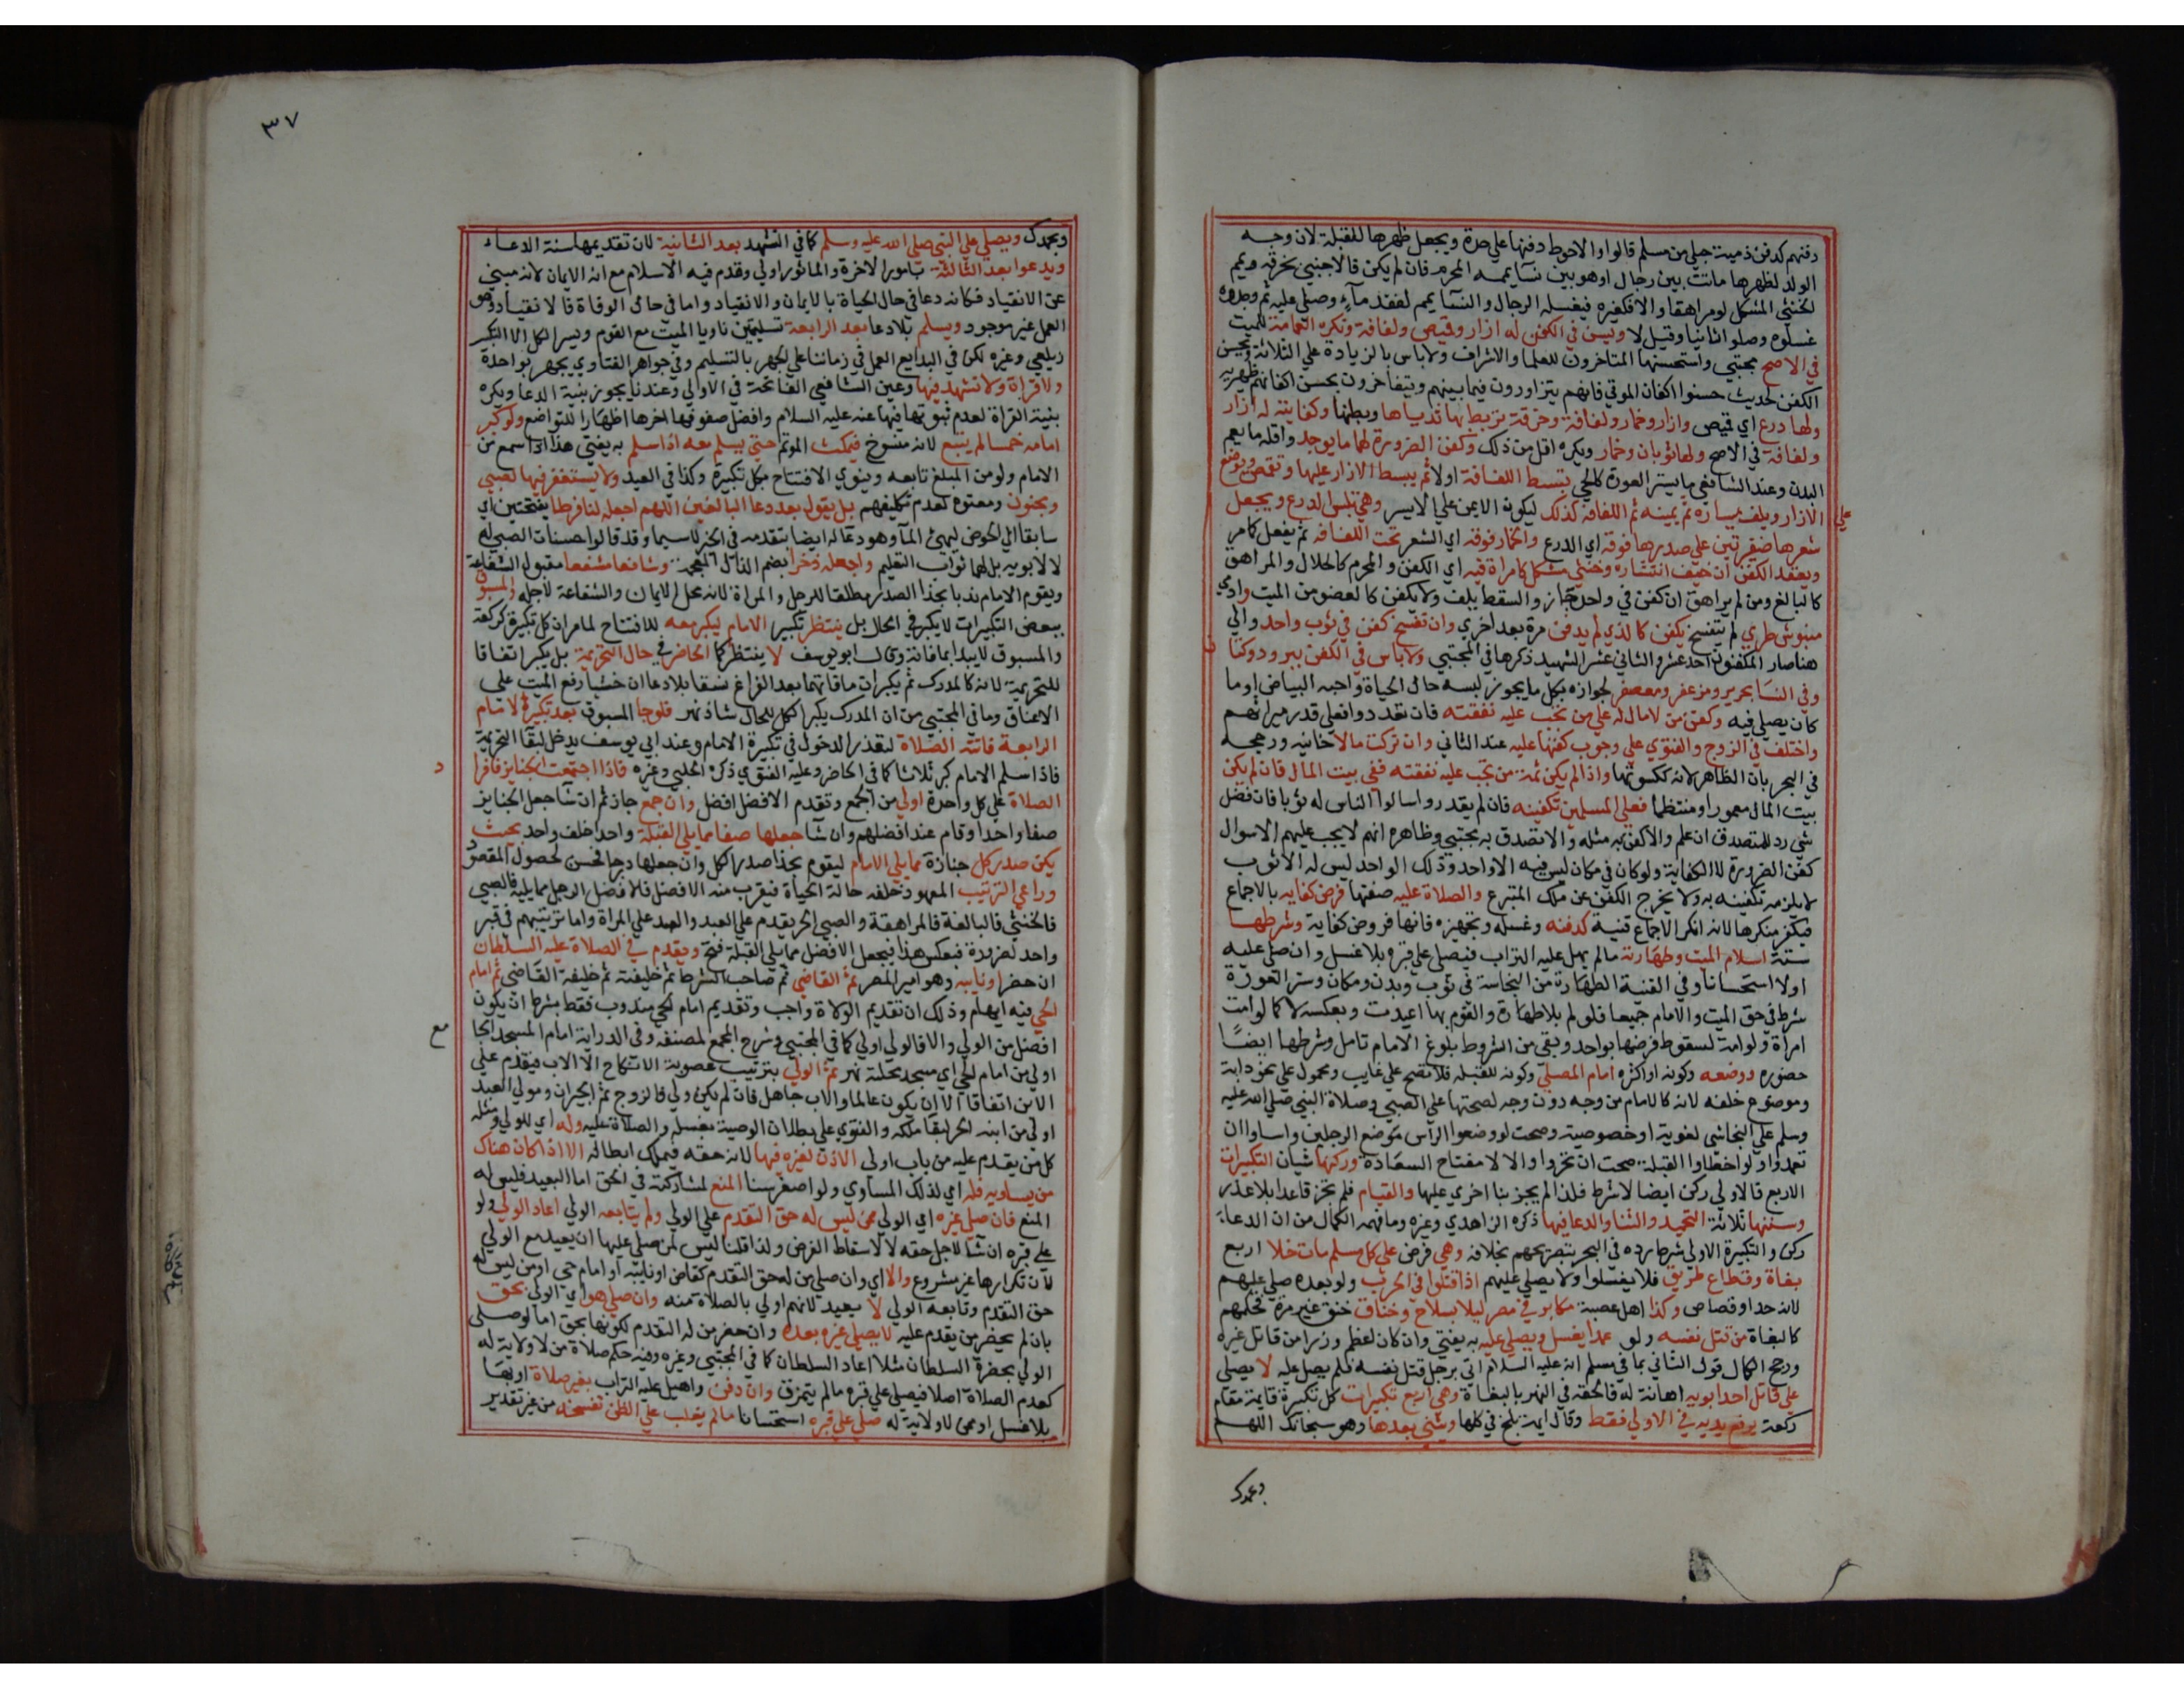 دفنهم كدفن ذمية حبلى من مسلم قالوا والاحوط دفنها علي حدة ويجعل ظهرها للقبلة لان وجه
الولد لظهرها ماتت بين رجال او هو بين نسآ يممه المحرم فان لم يكن فالاجنبي بخرقة وييمم
الخنثي المشكل لو مراهقا والا فكغيره فيغسله الرجال والنسآ يمم لفقد مآء وصلي عليه ثم وجدوه
غسلوه وصلوا ثانيا وقيل لا ويسن في الكفن له ازار وقميص ولفافة وتكره العمامة للميت
في الاصح مجتبي واستحسنها المتاخرون للعلما والاشراف ولا باس بالزيادة علي الثلاثة ويحسن
الكفن لحديث حسنوا اكفان الموتي فانهم يتزاورون فيما بينهم ويتفاخرون بحسن اكفانهم ظهيرية
ولها درع اي قميص وازار وخمار ولفافة وخرقة تربط بها ثدياها وبطنها وكفايته له ازار
ولفافة في الاصح ولها ثوبان وخمار ويكره اقل من ذلك وكفن الضرورة لهما ما يوجد واقله ما يعم
البدن وعند الشافعي ما يستر العورة كالحي تبسط اللفافة اولا ثم يبسط الازار عليها وتقمص ويوضع
علي الازار ويلف يساره ثم يمينه ثم اللفافة كذلك ليكون الايمن علي الايسر وهي تلبس الدرع ويجعل
شعرها ضفيرتين علي صدرها فوقه اي الدرع والخمار فوقه اي الشعر تحت اللفافة ثم يفعل كما مر
ويعقد الكفن ان خيف انتشاره وخنثي مشكل كامراة فيه اي الكفن والمحرم كالحلال والمراهق
كالبالغ ومن لم يراهق ان كفن في واحد جاز والسقط يلف ولا يكفن كالعضو من الميت وادمي
منبوش طري لم يتفسخ يكفن كالذي لم يدفن مرة بعد اخري وان تفسخ كفن في ثوب واحد والي
هنا صار المكفنون احد عشر والثاني عشر الشهيد ذكرها في المجتبي ولا باس في الكفن ببرود وكتان
وفي النسآ بحرير ومزعفر ومعصفر لجوازه بكل ما يجوز لبسه حال الحياة واحبه البياض او ما
كان يصلي فيه وكفن من لا مال له علي من تجب عليه نفقته فان تعددوا فعلي قدر ميراثهم
واختلف في الزوج والفتوي علي وجوب كفنها عليه عند الثاني وان تركت مالا خانيه ورجحه
في البحر بان الظاهر لانه ككسوتها واذا لم يكن ثمة من تجب عليه نفقته ففي بيت المال فان لم يكن
بيت المال معمورا ومنتظما فعلي المسلمين تكفينه فان لم يقدروا سالوا الناس له ثوبا فان فضل
شي رد للمتصدق ان علم والا كفن به مثله والا تصدق به مجتبي وظاهره انهم لا يجب عليهم الاسوال
كفن الضرورة لا الكفاية ولو كان في مكان ليس فيه الا واحد وذلك الواحد ليس له الا ثوب
لا يلزمه تكفينه به ولا يخرج الكفن عن ملك المتبرع والصلاة عليه صفتها فرض كفايه بالاجماع
فيكفر منكرها لانه انكر الاجماع قنية كدفنه وغسله وتجهيزه فانها فروض كفاية وشرطها
ستة اسلام الميت وطهارته مالم يهل عليه التراب فيصلي علي قبره بلا غسل وان صلي عليه
اولا استحسانا وفي القنية الطهارة من النجاسة في ثوب وبدن ومكان وستر العورة
شرط في حق الميت والامام جميعا فلو ام بلا طهارة والقوم بها اعيدت وبعكسه لا كما لو امت
امراة ولو امة لسقوط فرضها بواحد وبقي من الشروط بلوغ الامام تامل وشرطها ايضا
حضوره ووضعه وكونه او اكثره امام المصلي وكونه للقبله فلا تصح علي غايب ومحمول علي نحو دابة
وموضوع خلفه لانه كالامام من وجه دون وجه لصحتها علي الصبي وصلاة النبي صلي الله عليه
وسلم علي النجاشي لغوية او خصوصية وصحت لو وضعوا الراس موضع الرجلين واساوا ان
تعمدوا ولو اخطاوا القبلة صحت ان تحروا والا لا مفتاح السعادة وركنها شيان التكبيرات
الاربع فالاولي ركن ايضا لا شرط فلذا لم يجز بنا اخري عليها والقيام فلم تجز قاعدا بلا عذر
وسننها ثلاثة التحميد والثنا والدعا فيها ذكره الزاهدي وغيره وما فهمه الكمال من ان الدعاء
ركن والتكبيرة الاولي شرط رده في البحر بتصريحهم بخلافه وهي فرض علي كل مسلم مات خلا اربع
بغاة وقطاع طريق فلا يغسلوا ولا يصلي عليهم اذا قتلوا في الحرب ولو بعده صلي عليهم
لانه حد او قصاص وكذا اهل عصبة مكابر في مصر ليلا بسلاح وخناق خنق غير مرة فحكمهم
كالبغاة من قتل نفسه ولو عمدا يغسل ويصلي عليه به يفتي وان كان اعظم وزرا من قاتل غيره
ورجح الكمال قول الثاني بما في مسلم انه عليه السلام اتي برجل قتل نفسه فلم يصل عليه لا يصلي
علي قاتل احد ابويه اهانة له فالحقه في النهر بالبغاة وهي اربع تكبيرات كل تكبيرة قايمة مقام
ركعة يرفع يديه في الاولي فقط وقال ايمة بلخ في كلها ويثني بعدها وهو سبحانك اللهم
وبحمدك
٣٧
وبحمدك ويصلي علي النبي صلي الله عليه وسلم كما في التشهد بعد الثانية لان تقديمها سنة الدعاء
ويدعوا بعد الثالثة بامور الاخرة والماثور اولي وقدم فيه الاسلام مع انه الايمان لانه مبني
عن الانقياد فكانه دعا في حال الحياة بالايمان والانقياد واما في حال الوفاة فالانقياد وهو
العمل غير موجود ويسلم بلا دعا بعد الرابعة تسليمتين ناويا الميت مع القوم ويسر الكل الا التكبير
زيلعي وغيره لكن في البدايع العمل في زماننا علي الجهر بالتسليم وفي جواهر الفتاوي يجهر بواحدة
ولا قراة ولا تشهد فيها وعين الشافعي الفاتحة في الاولي وعندنا يجوز بنية الدعا ويكره
بنية القراة لعدم ثبوتها فيها عنه عليه السلام وافضل صفوفها اخرها اظهارا للتواضع ولو كبر
امامه خمسا لم يتبع لانه منسوخ فيمكث الموتم حتي يسلم معه اذا سلم به يفتي هذا اذا سمع من
الامام ولو من المبلغ تابعه وينوي الافتتاح بكل تكبيرة وكذا في العيد ولا يستغفر فيها لصبي
ومجنون ومعتوه لعدم تكليفهم بل يقول بعد دعا البالغين اللهم اجعله لنا فرطا بفتحتين اي
سابقا الي الحوض ليهيئ المآ وهو دعا له ايضا بتقدمه في الخير لا سيما وقد قالوا حسنات الصبي له
لا لابويه بل لهما ثواب التعليم واجعله ذخرا بضم الذال المعجمة وشافعا مشفعا مقبول الشفاعة
ويقوم الامام ندبا بحذا الصدر مطلقا للرجل والمراة لانه محل الايمان والشفاعة لاجله والمسبوق
ببعض التكبيرات لا يكبر في الحال بل ينتظر تكبير الامام ليكبر معه للافتتاح لما مر ان كل تكبيرة كركعة
والمسبوق لا يبدا بما فاته وقال ابو يوسف لا ينتظر كما الحاضر في حال التحريمة بل يكبر اتفاقا
للتحريمة لانه كالمدرك ثم يكبران ما فاتهما بعد الفراغ نسقا بلا دعا ان خشيا رفع الميت علي
الاعناق وما في المجتبي من ان المدرك يكبر الكل للحال شاذ نهر فلو جا المسبوق بعد تكبيرة الامام
الرابعة فاتته الصلاة لتعذر الدخول في تكبيرة الامام وعند ابي يوسف يدخل لبقا التحريمة
فاذا سلم الامام كبر ثلاثا كما في الحاضر وعليه الفتوي ذكره الحلبي وغيره فاذا اجتمعت الجنايز فافراد
الصلاة علي كل واحدة اولي من الجمع وتقدم الافضل افضل وان جمع جاز ثم ان شا جعل الجنايز
صفا واحدا وقام عند افضلهم وان شآ جعلها صفا مما يلي القبلة واحدا خلف واحد بحيث
يكن صدر كل جنازة مما يلي الامام ليقوم بحذا صدر الكل وان جعلها درجا فحسن لحصول المقصود
وراعي الترتيب المعهود خلفه حالة الحياة فيقرب منه الافضل فالافضل الرجل مما يليه فالصبي
فالخنثي فالبالغة فالمراهقة والصبي الحر يقدم علي العبد والعبد علي المراة واما ترتيبهم في قبر
واحد لضرورة فبعكس هذا فيجعل الافضل مما يلي القبلة فتح ويقدم في الصلاة عليه السلطان
ان حضر او نايبه وهو امير المصر ثم القاضي ثم صاحب الشرط ثم خليفته ثم خليفة القاضي ثم امام
الحي فيه ايهام وذلك ان تقديم الولاة واجب وتقديم امام الحي مندوب فقط بشرط ان يكون
افضل من الولي والا فالولي اولي كما في المجتبي وشرح المجمع لمصنفه وفي الدراية امام المسجد الجامع
اولي من امام الحي اي مسجد محلته نهر ثم الولي بترتيب عصوبة الانكاح الا الاب فيقدم علي
الابن اتفاقا الا ان يكون عالما والاب جاهل فان لم يكن ولي فالزوج ثم الجيران ومولي العبد
اولي من ابنه الحر لبقا ملكه والفتوي علي بطلان الوصية بغسله والصلاة عليه وله اي للولي ومثله
كل من يقدم عليه من باب اولي الاذن لغيره فيها لانه حقه فيملك ابطاله الا اذا كان هناك
من يساويه فله اي لذلك المساوي ولو اصغر سنا المنع لمشاركته في الحق اما البعيد فليس له
المنع فان صلي غيره اي الولي ممن ليس له حق التقدم علي الولي ولم يتابعه الولي اعاد الولي ولو
علي قبره ان شآ لاجل حقه لا لاسقاط الفرض ولذا قلنا ليس لمن صلي عليها ان يعيد مع الولي
لان تكرارها غير مشروع والا اي وان صلي من له حق التقدم كقاض او نايبه او امام حي او من ليس له
حق التقدم وتابعه الولي لا يعيد لانهم اولي بالصلاة منه وان صلي هو اي الولي بحق
بان لم يحضر من يقدم عليه لا يصلي غيره بعده وان حضر من له التقدم لكونها بحق اما لو صلي
الولي بحضرة السلطان مثلا اعاد السلطان كما في المجتبي وغيره وفيه حكم صلاة من لا ولاية له
كعدم الصلاة اصلا فيصلي علي قبره مالم يتمزق وان دفن واهيل عليه التراب بغير صلاة او بها
بلا غسل او ممن لا ولاية له صلي علي قبره استحسانا مالم يغلب علي الظن تفسخه من غير تقدير